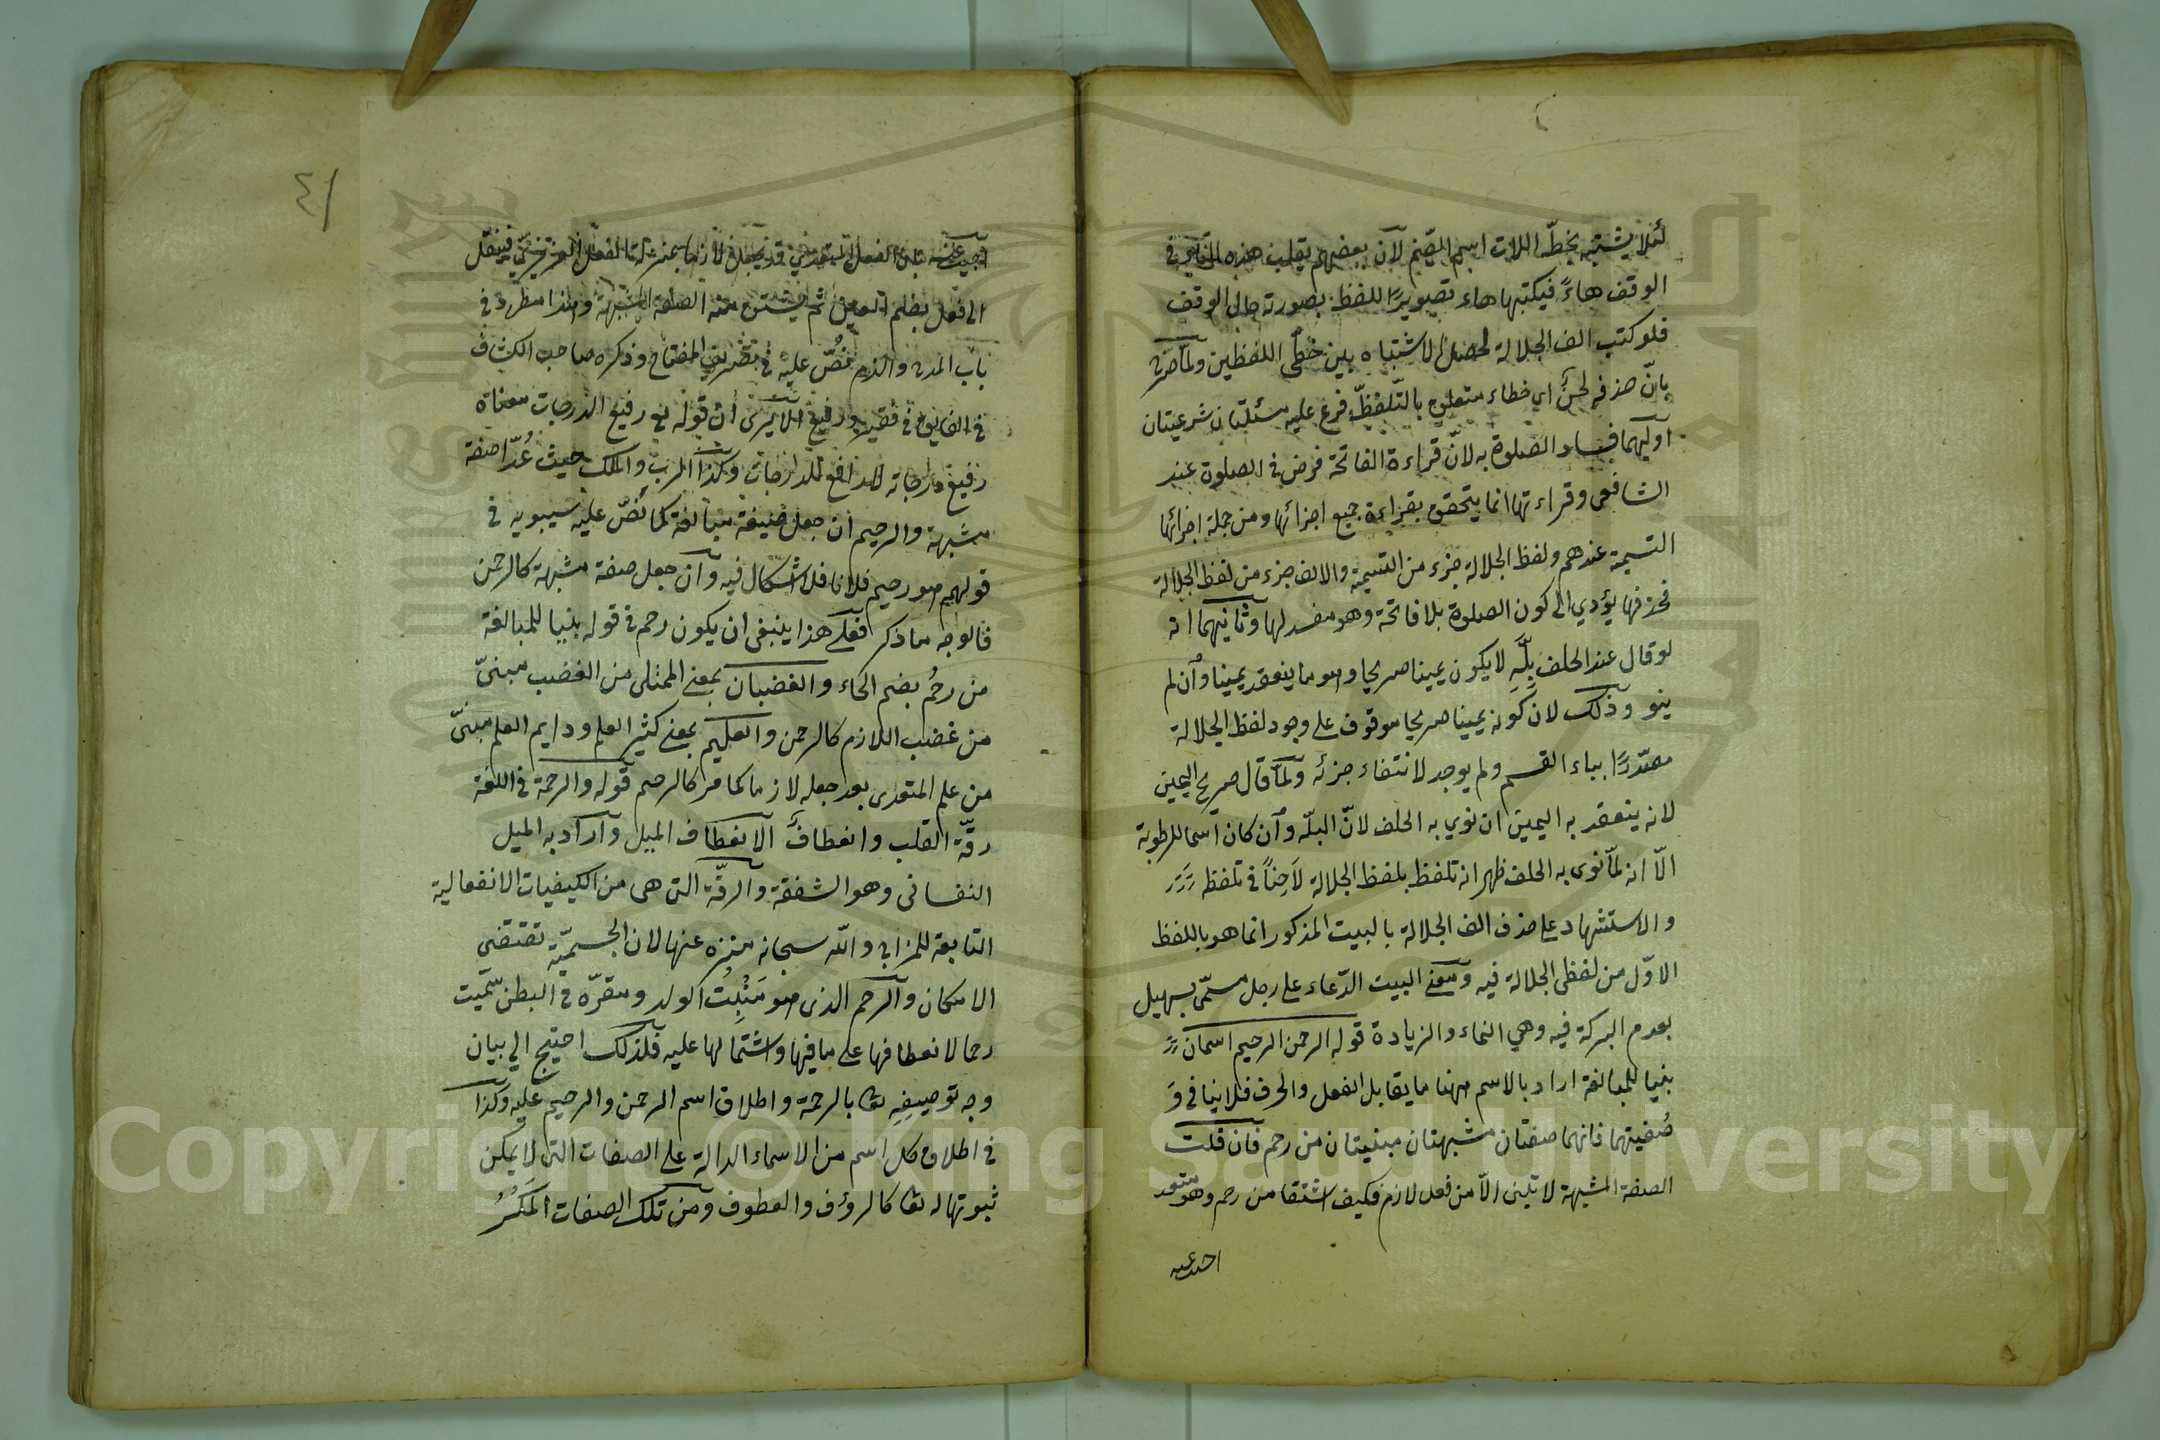 لئلا يشتبه بخطّ اللات اسم الصّنم لأن بعضهم يقلب هذه التاء في
الوقف هاءً فيكتبها هاء تصويرًا للفظ بصورته حال الوقف
فلو كتب الف الجلالة لحصل الاشتباه بين خطّى اللفظين ولما صرح
بانّ حذفه لحنٌ اي خطاء متعلق بالتّلفظّ فرع عليه مسئلتان شرعيتان
اوليهما فساد الصلوة به لانّ قراءة الفاتحة فرض في الصلوة عند
الشافعى وقراءتها انما يتحقق بقراءة جميع اجزائها ومن جملة اجزائها
التسمية عندهم ولفظ الجلالة جزء من التسمية والالف جزء من لفظ الجلالة
فحذفها يؤدي الى كون الصلوة بلا فاتحة وهو مفسد لها وثانيهما انه
لو قال عند الحلف بِلَّهِ لا يكون يمينا صريحا وهو ما ينعقد يمينا وان لم
ينو وذلك لان كونه يمينا صريحا موقوف على وجود لفظ الجلالة
مصدّرًا بباء القسم ولم يوجد لانتفاء جزئه ولما قال صريح اليمين
لانه ينعقد به اليمين ان نوي به الحلف لانّ البلّه وان كان اسما للرطوبة
الّا انه لمّا نوى به الحلف ظهر انه تلفظ بلفظ الجلالة لاحِنًا في تلفظه
والاستشهاد على حذف الف الجلالة بالبيت المذكور انما هو باللفظ
الاوّل من لفظى الجلالة فيه ومعنى البيت الدّعاء على رجل مسمّى بسهيل
بعدم البركة فيه وهي النماء والزيادة قوله الرحمن الرحيم اسمان
بنيا للمبالغة اراد بالاسم ههنا ما يقابل الفعل والحرف فلا ينافي وَ
صْفيتهما فانهما صفتان مشبهتان مبنيتان من رحم فان قلت
الصفة المشبهة لا تبنى الاّ من فعل لازم فكيف اشتقا من رحم وهو متعد
اجيب عنه
٤١
اجيب عنه بان الفعل المتعدي قد يجعل لازما بمنزلة الفعل الغريزىّ فينقل
الى فعل بضم العين ثم يشتق منه الصفة المشبهة وهذا مطرد في
باب المدح والذم نصّ عليه في تصريف المفتاح وذكره صاحب الكشاف
في الفايق في فقير ورفيع الا يرى ان قوله تع رفيع الدرجات معناه
رفيع درجاته لا رافع للدرجات وكذا الرب والملك حيث عُدّا صفة
مشبهة والرحيم ان جعل صيغة مبالغة كما نصّ عليه سيبويه في
قولهم هو رحيم فلانا فلا اشكال فيه وان جعل صفة مشبهة كالرحمن
فالوجه ما ذكر فعلى هذا ينبغى ان يكون رحم في قوله بنيا للمبالغة
من رحُم بضم الحاء والغضبان بمعنى الممتلى من الغضب مبنىّ
من غضب اللازم كالرحمن والعليم بمعنى كثير العلم ودايم العلم مبنىّ
من علم المتعدى بعد جعله لازما كما مر كالرحيم قوله والرحمة في اللغة
رقّة القلب وانعطافٌ الانعطاف الميل واراد به الميل
النفسانى وهو الشفقة والرقّة التى هى من الكيفيات الانفعالية
التابعة للمزاج والله سبحانه منزه عنها لان الجسميّة تقتضى
الامكان والرحم الذى هو مَنْبِتُ الولد ومقرّه في البطن سمّيت
رحما لانعطافها على ما فيها واشتمالها عليه فلذلك احتيج الي بيان
وجه توصيفِهِ تعا بالرحمة واطلاق اسم الرحمن والرحيم عليه وكذا
في اطلاق كل اسم من الاسماء الدالة على الصفات التى لا يمكن
ثبوتها له تعا كالرؤف والعطوف ومن تلك الصفات المَكْرُ
Copyright © King Saud University